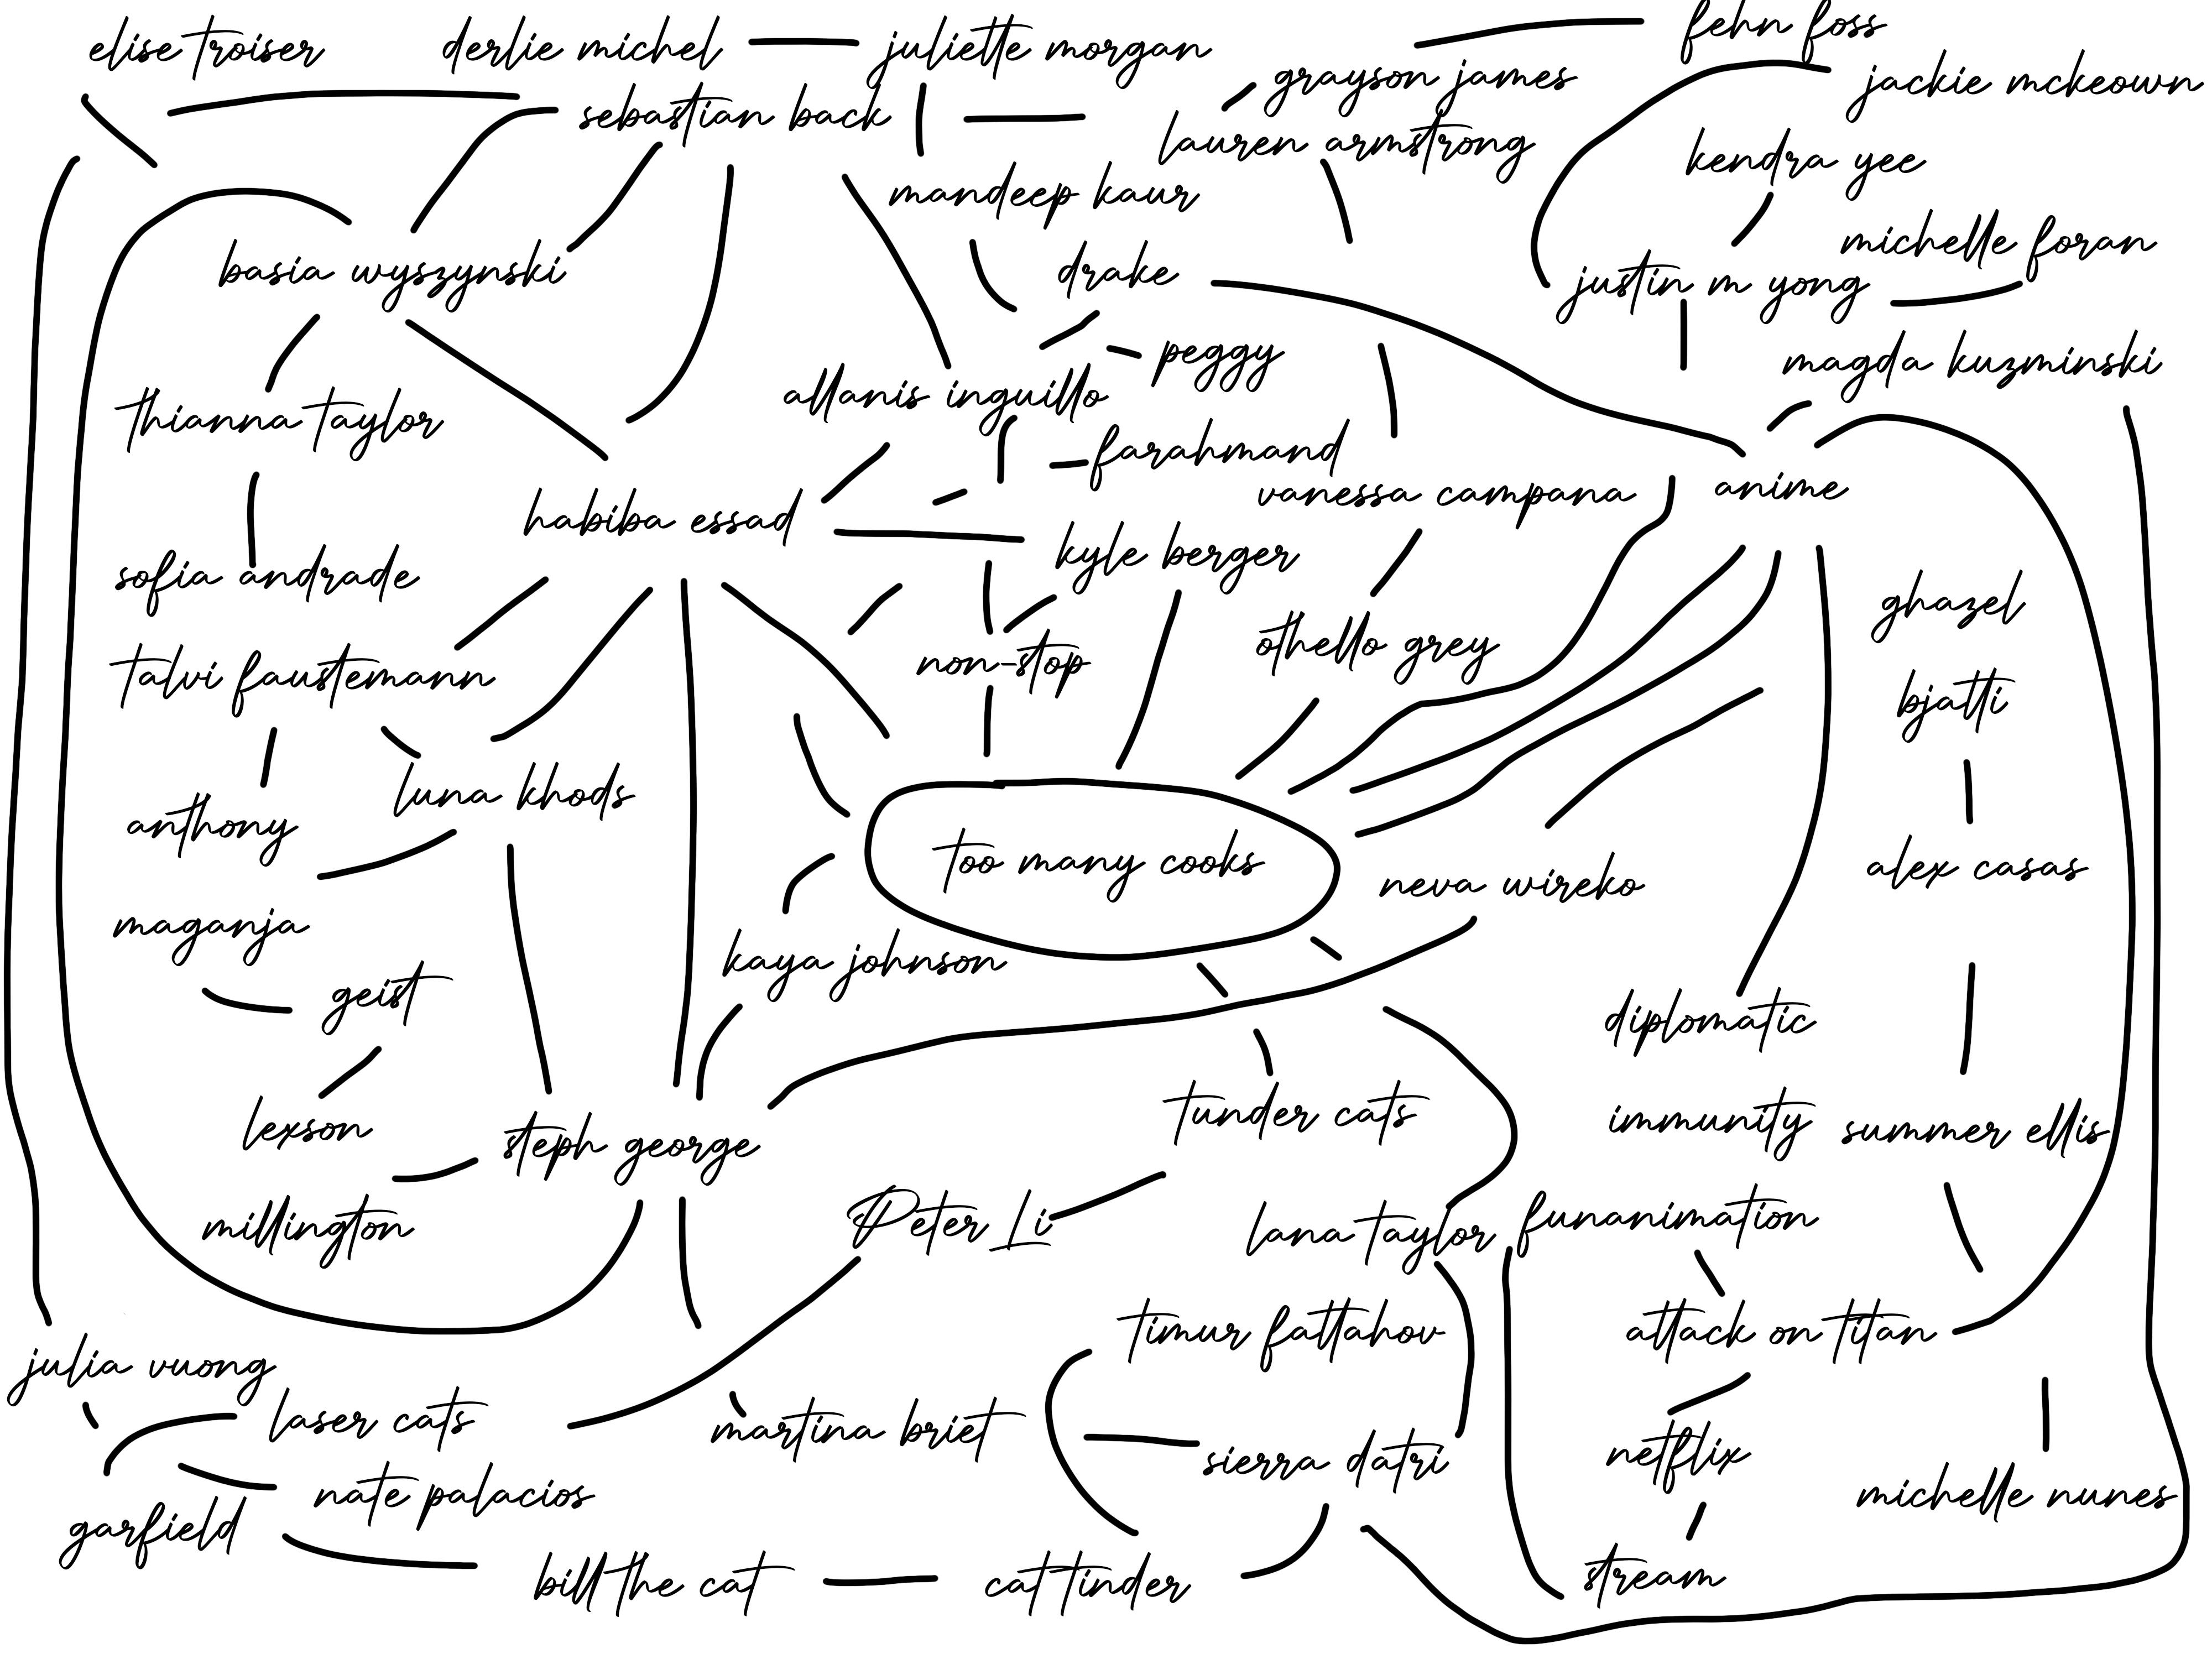 elise troiser
derlie michel
juliette morgan
fehn foss
grayson james
jackie mckeown
sebastian back
lauren armstrong
kendra yee
mandeep kaur
michelle foran
basia wyszynski
drake
justin m yong
peggy
magda kuzminski
allanis inguillo
thianna taylor
farahmand
vanessa campana
anime
habiba essad
kyle berger
sofia andrade
ghazel
othello grey
non-stop
talvi faustemann
bjatti
luna khods
anthony
too many cooks
neva wireko
alex casas
maganja
kaya johnson
geist
diplomatic
tunder cats
lexson
steph george
immunity
summer ellis
millington
Peter Li
lana taylor
funanimation
timur fattahov
attack on titan
julia vuong
laser cats
martina briet
sierra datri
netflix
nate palacios
michelle nunes
garfield
bill the cat
cat tinder
stream